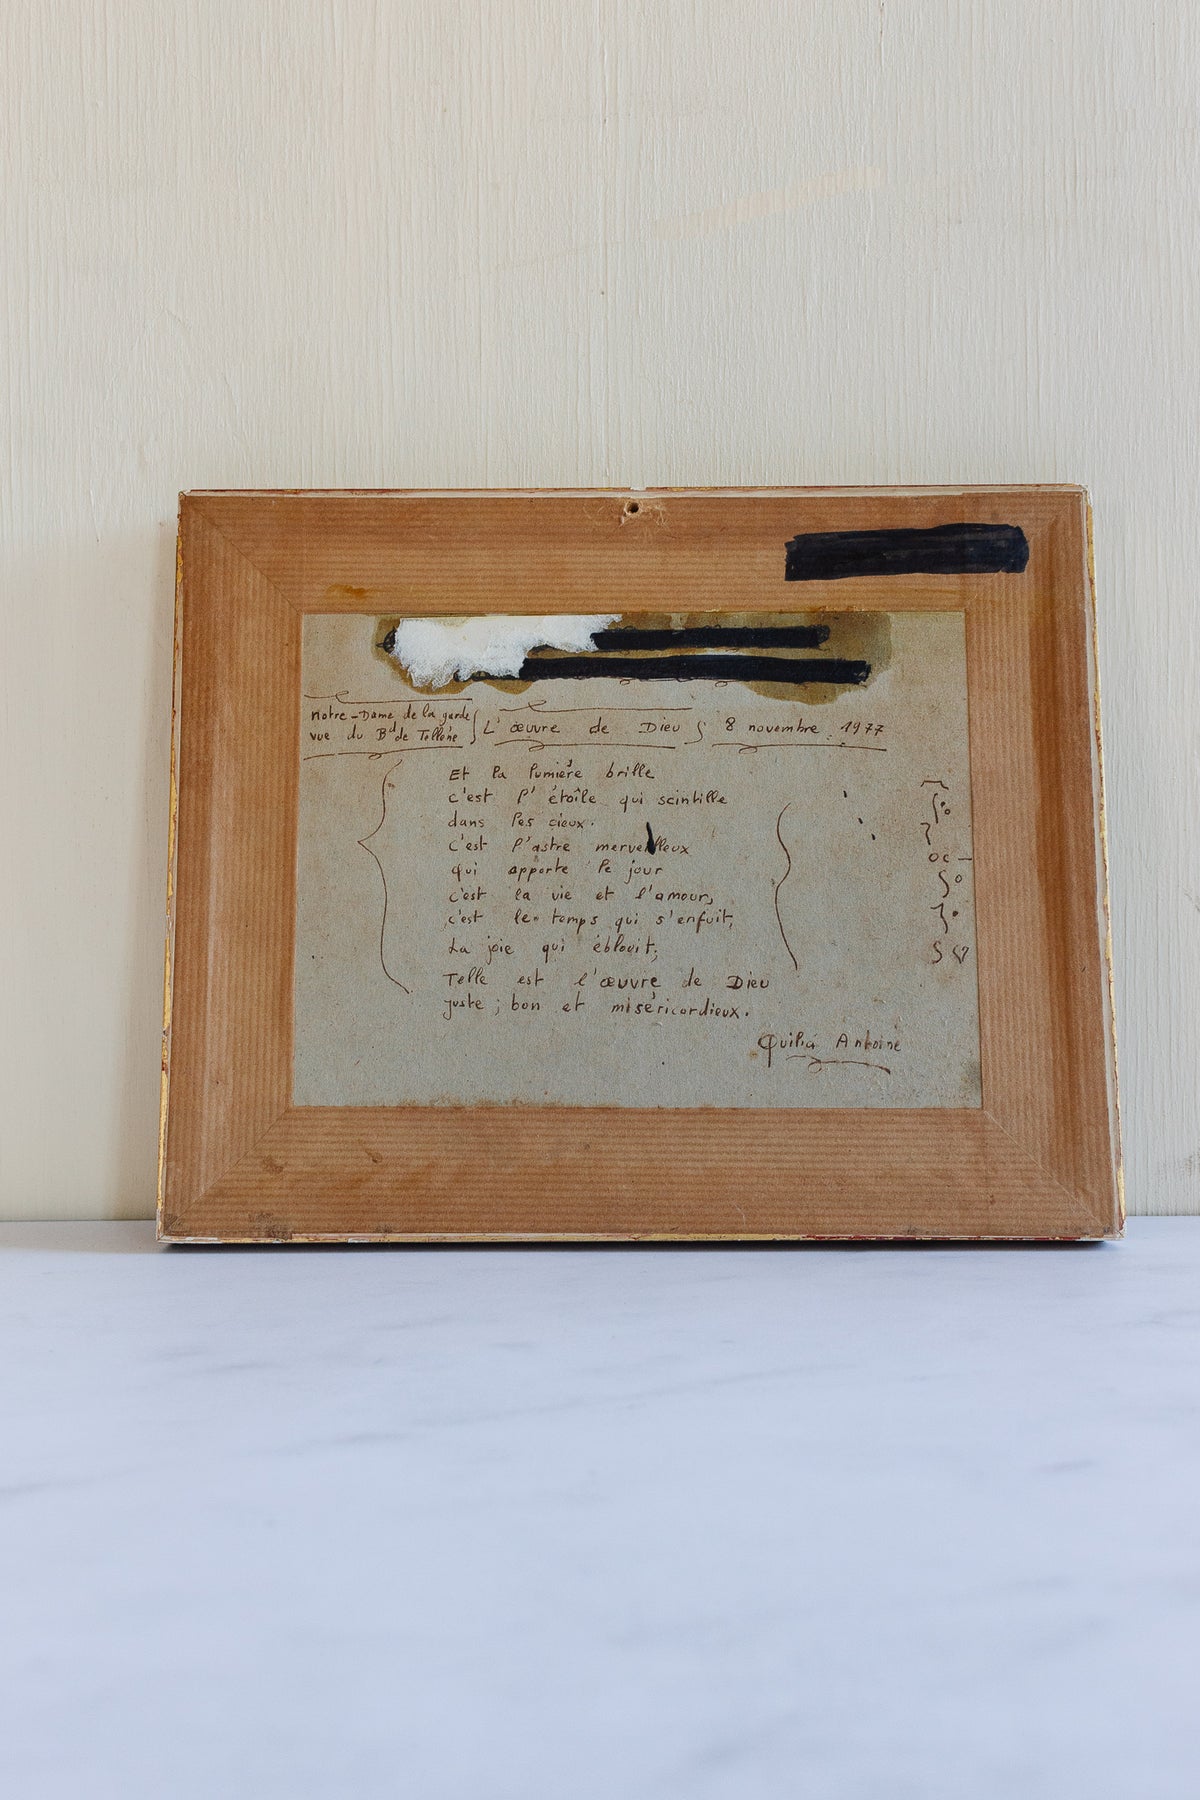 Notre-Dame de la garde
vue du Bd de Tellène
L'œuvre de Dieu
8 novembre 1977
Et la lumière brille
c'est l'étoîle qui scintille
dans les cieux.
c'est l'astre merveilleux
qui apporte le jour
c'est la vie et l'amour,
c'est le temps qui s'enfuit,
La joie qui éblouit;
Telle est l'œuvre de Dieu
juste ; bon et miséricordieux.
Antoine